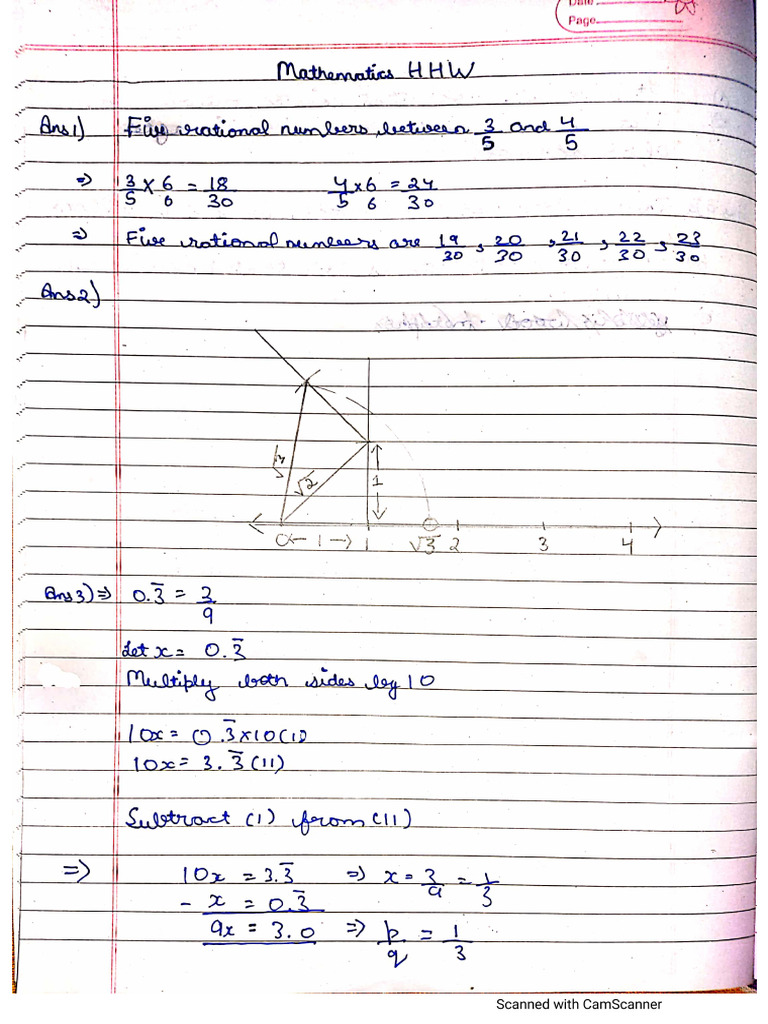 Date
Page
Mathematics HHW
Ans1) Five rational numbers between 3/5 and 4/5
⇒ 3/5 × 6/6 = 18/30 4/5 × 6/6 = 24/30
⇒ Five rational numbers are 19/30, 20/30, 21/30, 22/30, 23/30
Ans2)
√3 √2 1
0 ← 1 → 1 √3 2 3 4
Ans3) ⇒ 0.3̅ = 3/9
Let x = 0.3̅
Multiply both sides by 10
10x = 0.3̅ × 10 (1)
10x = 3.3̅ (11)
Subtract (1) from (11)
⇒ 10x = 3.3̅ ⇒ x = 3/9 = 1/3
- x = 0.3̅
9x = 3.0 ⇒ p/q = 1/3
Scanned with CamScanner